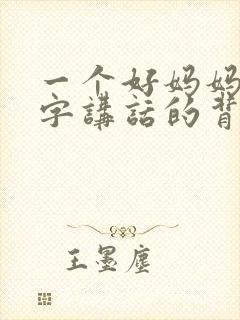 一个好妈妈
字講話的背
王墨塵